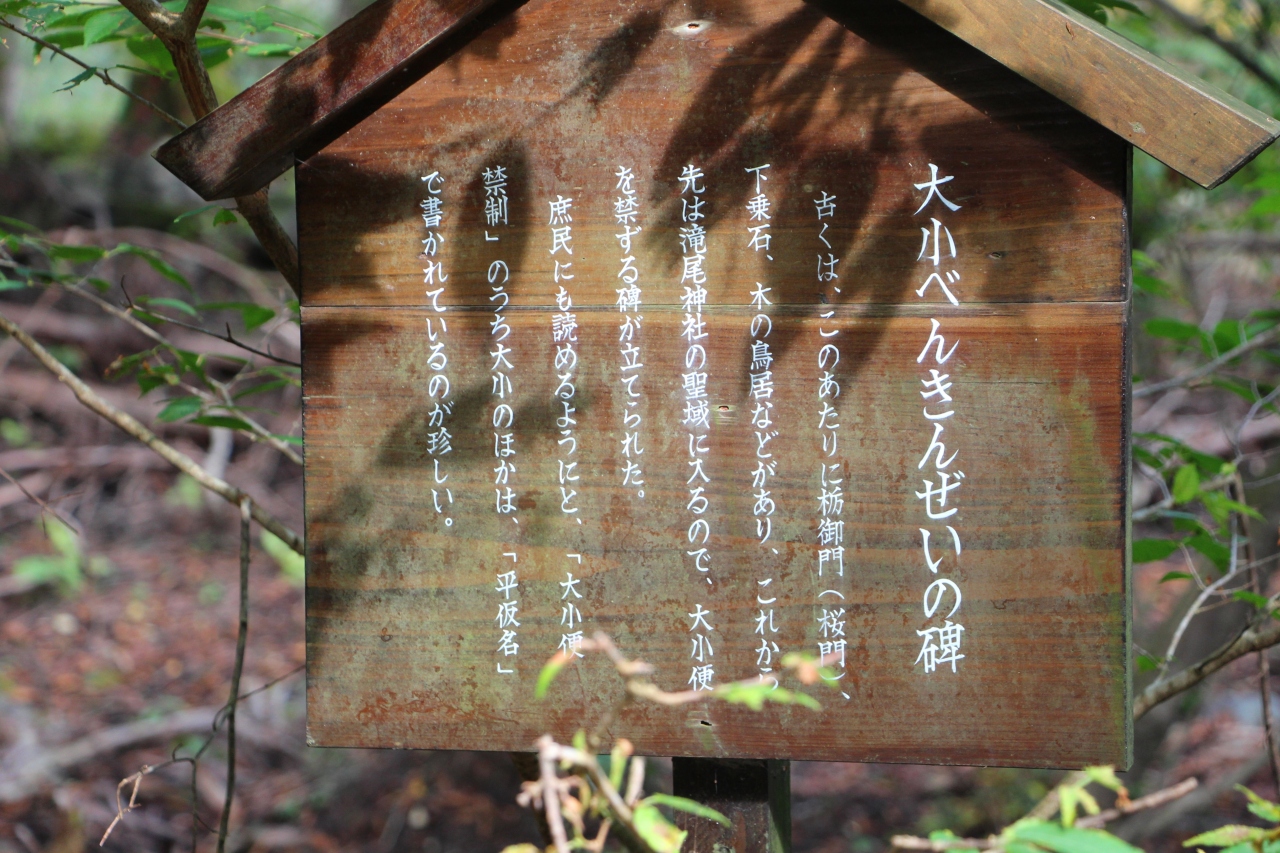 大小べんきんぜいの碑
古くは、このあたりに栃御門(桜門)、
下乗石、木の鳥居などがあり、これから
先は滝尾神社の聖域に入るので、大小便
を禁ずる碑が立てられた。
庶民にも読めるようにと、「大小便
禁制」のうち大小のほかは、「平仮名」
で書かれているのが珍しい。